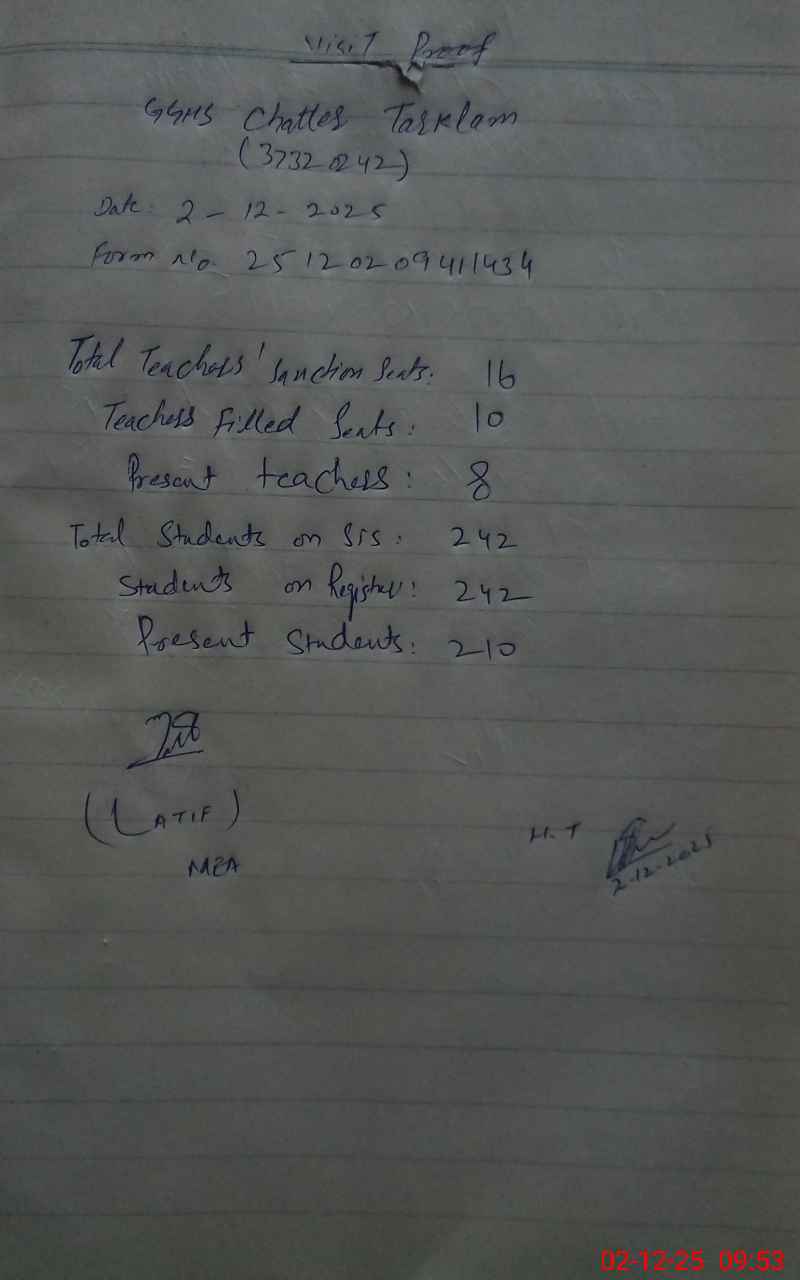 Visit Proof
GGHS Chatter Tarklam
(37320242)
Date: 2-12-2025
Form No. 25120209411434
Total Teachers' Sanction Seats: 16
Teachers Filled Seats: 10
Present teachers: 8
Total Students on SIS: 242
Students on Register: 242
Present Students: 210
(LATIF)
MEA
H.T
2-12-2025
02-12-25 09:53